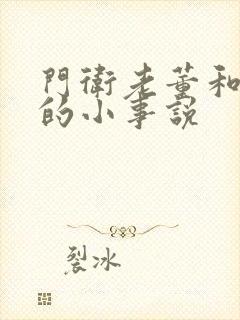 門衛老董和
的小事說
裂冰